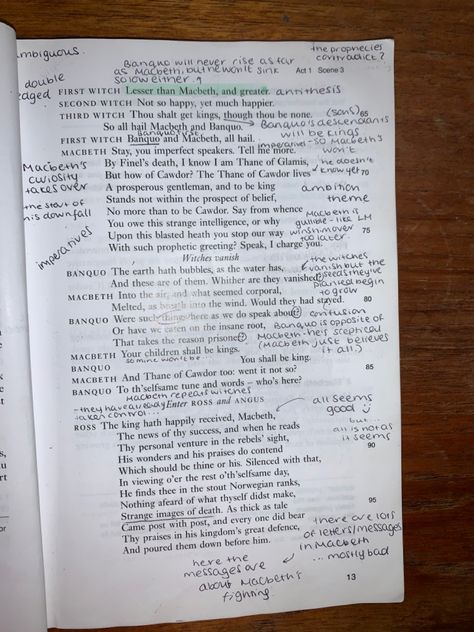 ambiguous.
Banquo will never rise as far
as Macbeth, but he won't sink
so low either.
Act 1 Scene 3
the prophecies
contradict?
double
edged
FIRST WITCH Lesser than Macbeth, and greater. antithesis
SECOND WITCH Not so happy, yet much happier.
THIRD WITCH Thou shalt get kings, though thou be none. (sons) 65
So all hail Macbeth and Banquo.
Banquo's descendants
will be kings
Banquo first
FIRST WITCH Banquo and Macbeth, all hail.
imperative - so Macbeth's
won't
MACBETH Stay, you imperfect speakers. Tell me more.
By Finel's death, I know I am Thane of Glamis,
But how of Cawdor? The Thane of Cawdor lives 70
he doesn't
know yet
A prosperous gentleman, and to be king
Stands not within the prospect of belief,
No more than to be Cawdor. Say from whence
You owe this strange intelligence, or why
Upon this blasted heath you stop our way 75
With such prophetic greeting? Speak, I charge you.
Macbeth's
curiosity
takes over
the start of
his downfall
imperatives
ambition
theme
Macbeth is
gullible - like LM
wins him over
later
Witches vanish
BANQUO The earth hath bubbles, as the water has,
And these are of them. Whither are they vanished?
MACBETH Into the air, and what seemed corporal,
Melted, as breath into the wind. Would they had stayed. 80
the witches
vanish but the
seeds they've
planted begin
to grow
BANQUO Were such things here as we do speak about?
Or have we eaten on the insane root,
That takes the reason prisoner?
confusion
Banquo is opposite of
Macbeth - he's sceptical
(Macbeth just believes
it all.)
MACBETH Your children shall be kings.
so mine won't be...
BANQUO You shall be king.
MACBETH And Thane of Cawdor too: went it not so? 85
BANQUO To th'selfsame tune and words – who's here?
Macbeth repeats witches
- they have already
taken control...
Enter ROSS and ANGUS
ROSS The king hath happily received, Macbeth,
The news of thy success, and when he reads
Thy personal venture in the rebels' sight, 90
His wonders and his praises do contend
Which should be thine or his. Silenced with that,
In viewing o'er the rest o'th'selfsame day,
He finds thee in the stout Norwegian ranks,
Nothing afeard of what thyself didst make, 95
Strange images of death. As thick as tale
Came post with post, and every one did bear
Thy praises in his kingdom's great defence,
And poured them down before him.
all seems
good
but
all is not as
it seems
there are lots
of letters/messages
in Macbeth
... mostly bad
here the
messages are
about Macbeth's
fighting
13